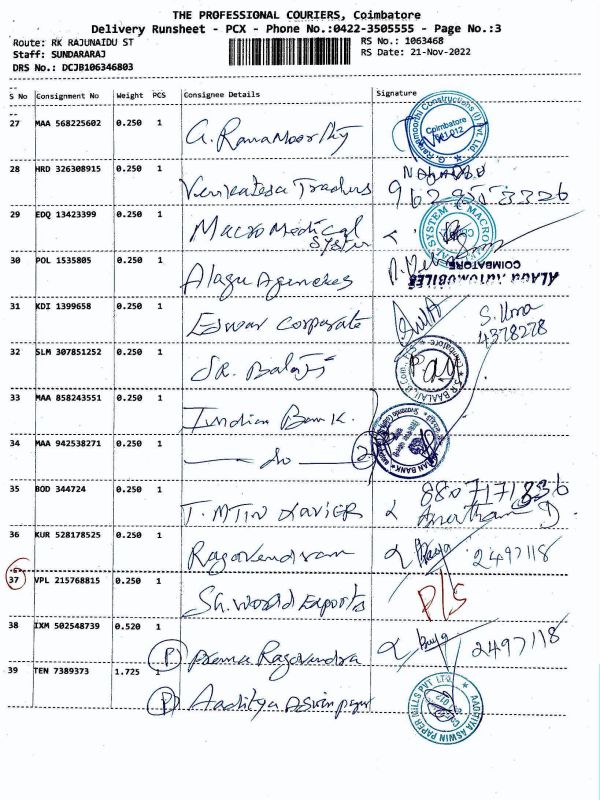 THE PROFESSIONAL COURIERS, Coimbatore
Delivery Runsheet - PCX - Phone No.:0422-3505555 - Page No.:3
Route: RK RAJUNAIDU ST
RS No.: 1063468
Staff: SUNDARARAJ
RS Date: 21-Nov-2022
DRS No.: DCJB106346803
S No Consignment No Weight PCS Consignee Details Signature
27 MAA 568225602 0.250 1 G. Ramamoorthy
Coimbatore
28 HRD 326308915 0.250 1 Venkatesa Traders
29 EDQ 13423399 0.250 1 Macro Medical
System
30 POL 1535805 0.250 1 Alagu Agencies
ALAGU AUTOMOBILES
COIMBATORE
31 KDI 1399658 0.250 1 Eswar Corporate S. Uma
4378278
32 SLM 307851252 0.250 1 SR. Balaji
33 MAA 858243551 0.250 1 Indian Bank.
34 MAA 942538271 0.250 1 — do — 2
35 BOD 344724 0.250 1 8807171336
36 KUR 528178525 0.250 1 Ragavendram 2497118
37 VPL 215768815 0.250 1 Sh. World Exports P/S
38 IXM 502548739 0.520 1 P Prema Ragavendra 2497118
39 TEN 7389373 1.725 1 P Aaditya Aswin paper
AADITYA ASWIN PAPER MILLS PVT LTD